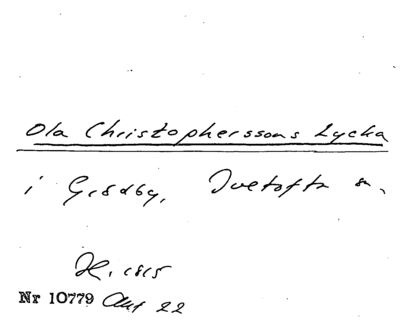 Ola Christopherssons Lycka
i Gisdby, Ivetofta sn.
H. 1815
Nr 10779 Akt 22